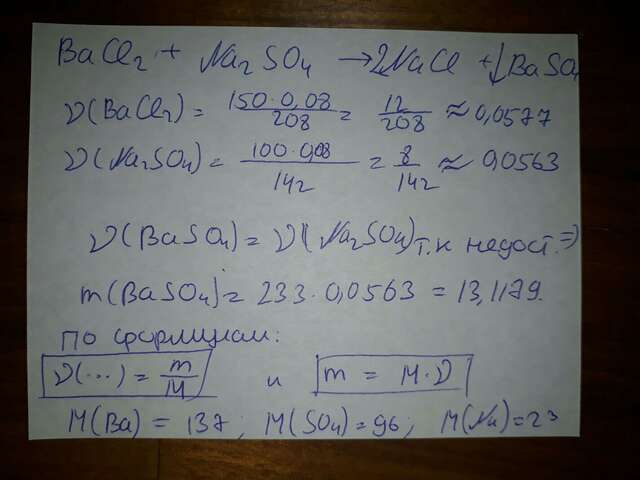 BaCl₂ + Na₂SO₄ → 2NaCl + ↓BaSO₄
ν(BaCl₂) = 150·0,08/208 = 12/208 ≈ 0,0577
ν(Na₂SO₄) = 100·0,08/142 = 8/142 ≈ 0,0563
ν(BaSO₄) = ν(Na₂SO₄) т.к недост. ⇒
m(BaSO₄) = 233·0,0563 = 13,117г.
по формулам:
ν(...) = m/M и m = M·ν
M(Ba) = 137; M(SO₄) = 96; M(Na) = 23